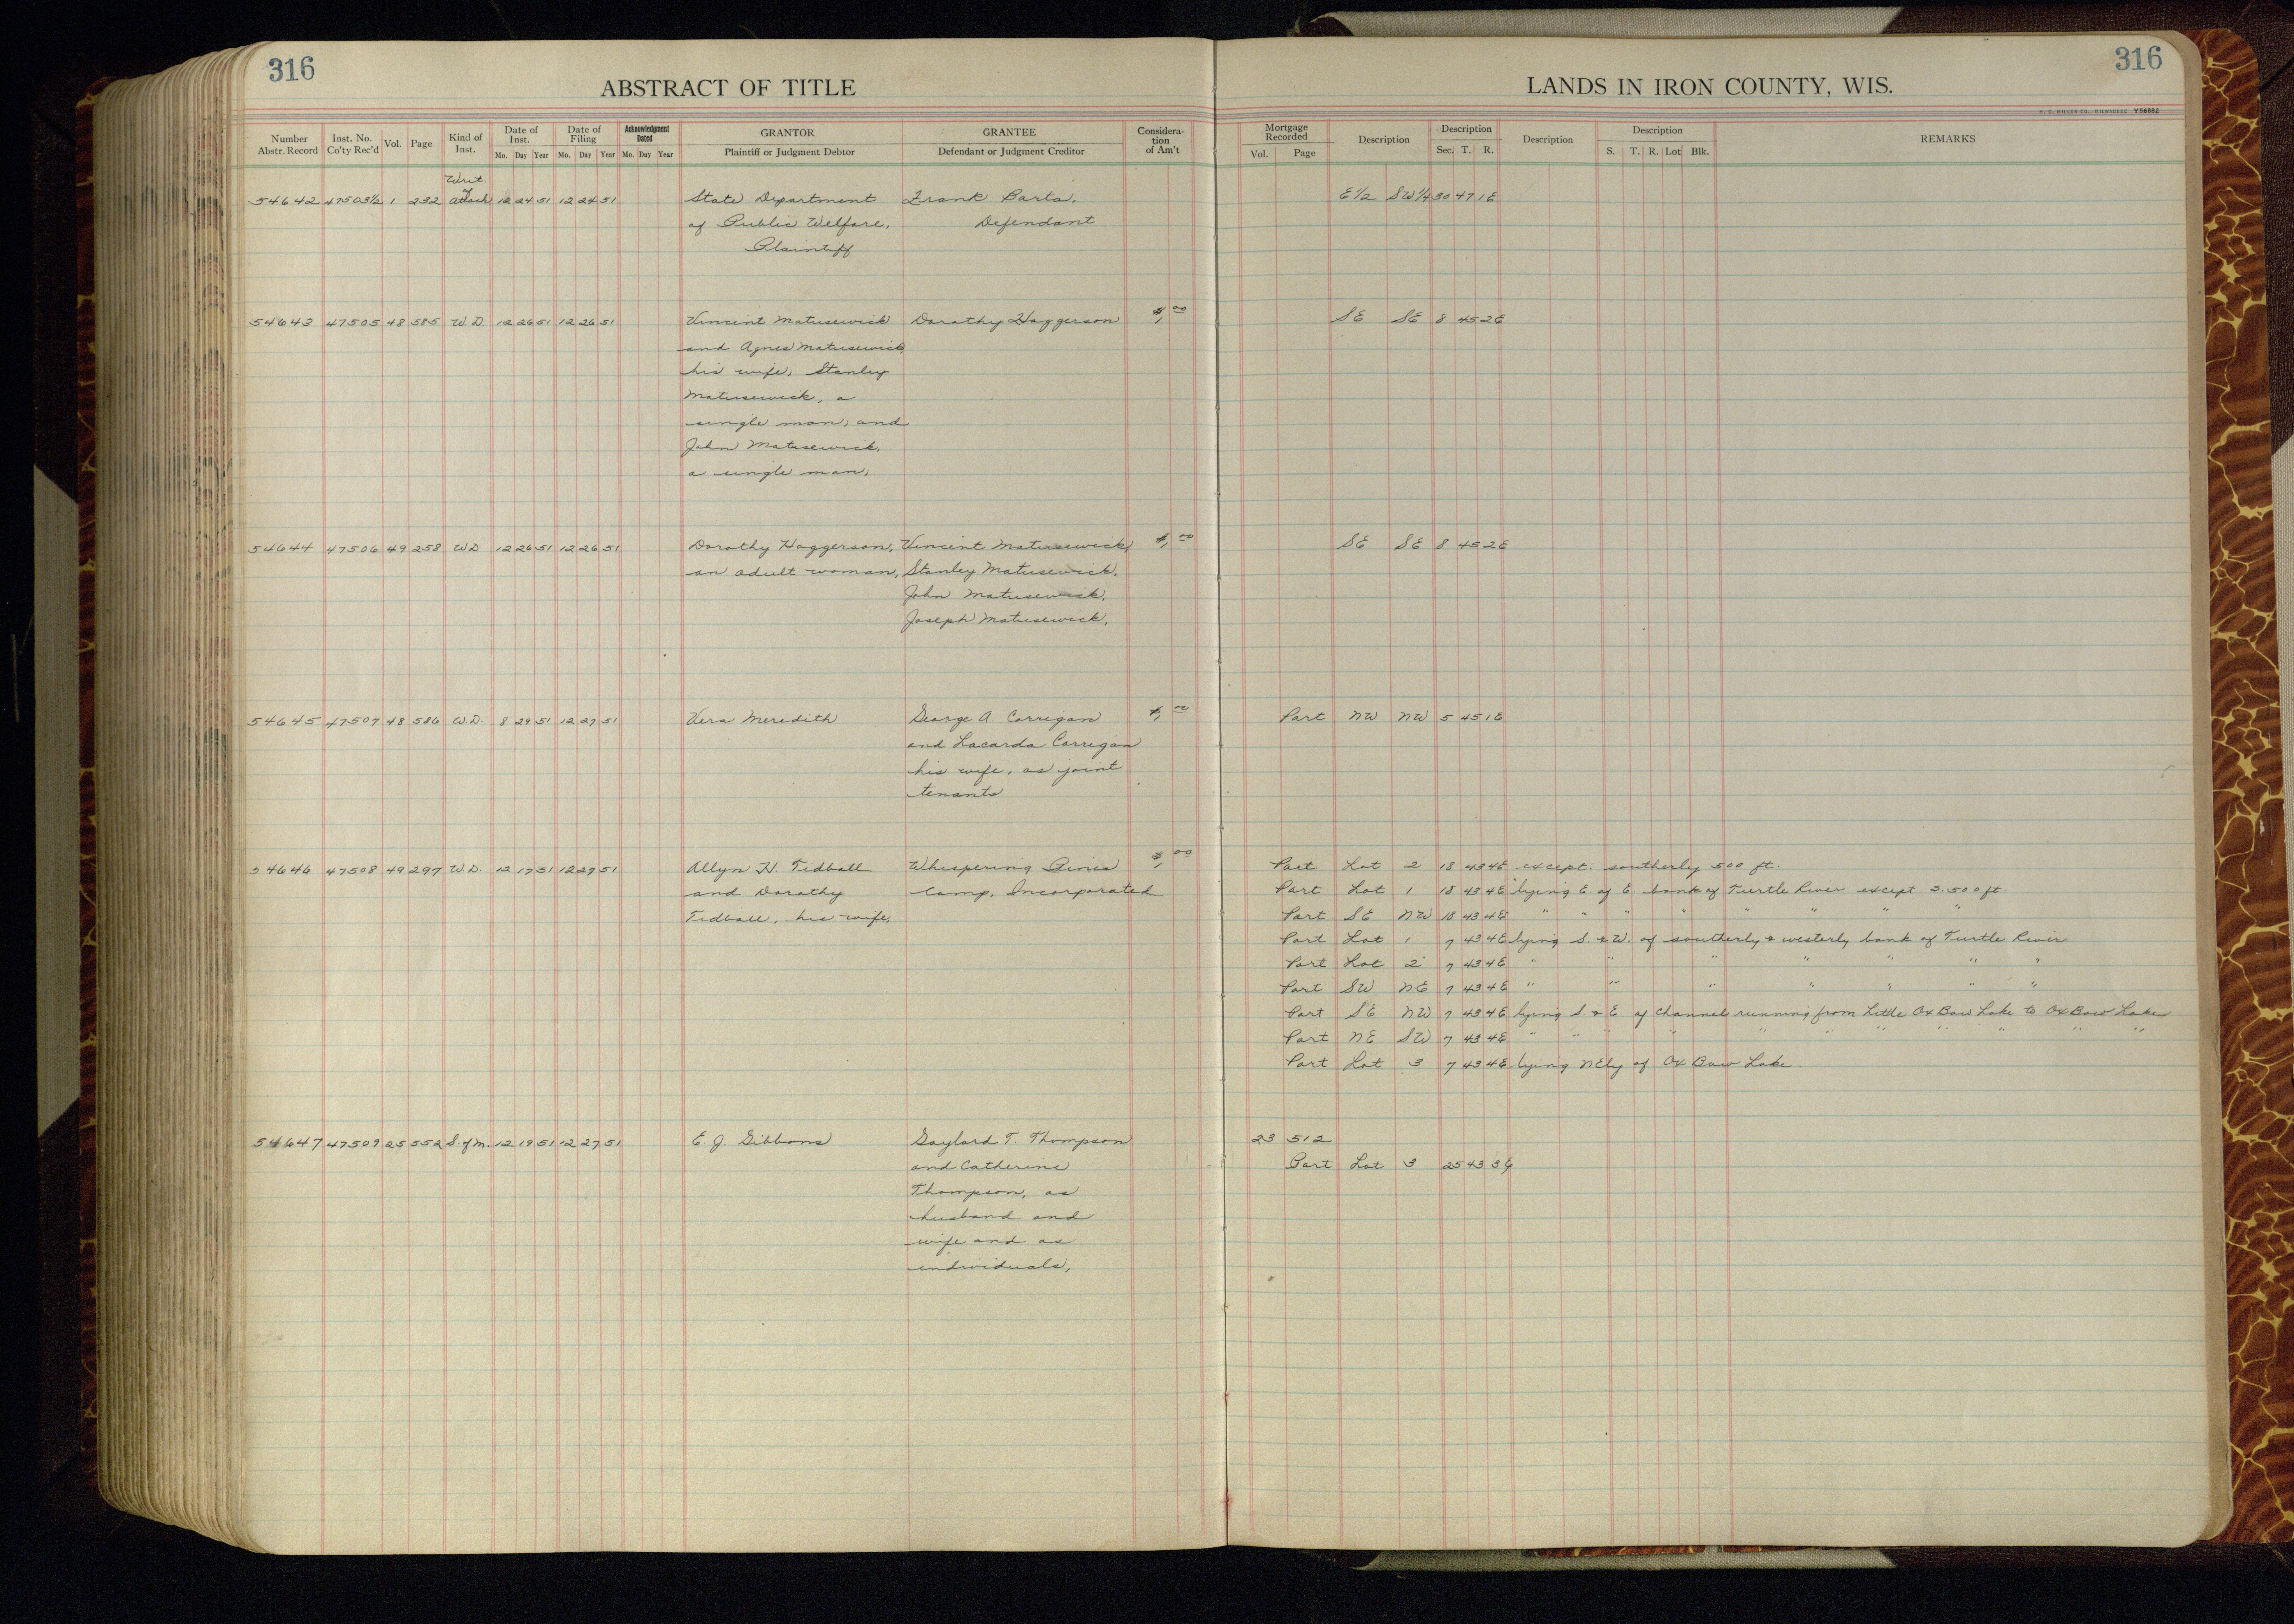 316
ABSTRACT OF TITLE
Number Abstr. Record Inst. No. Co'ty Rec'd Vol. Page Kind of Inst. Date of Inst. Mo. Day Year Date of Filing Mo. Day Year Acknowledgment Dated Mo. Day Year GRANTOR Plaintiff or Judgment Debtor GRANTEE Defendant or Judgment Creditor Considera-tion of Am't
Writ of
54642 47503½ 1 232 Attach 12 24 51 12 24 51 State Department Frank Parta,
of Public Welfare, Defendant
Plaintiff
54643 47505 48 585 W.D. 12 26 51 12 26 51 Vincent Matusewick Dorothy Haggerson $1.00
and Agnes Matusewick
his wife; Stanley
Matusewick, a
single man; and
John Matusewick,
a single man;
54644 47506 49 258 WD 12 26 51 12 26 51 Dorothy Haggerson, Vincent Matusewick, $1.00
an adult woman, Stanley Matusewick,
John Matusewick,
Joseph Matusewick,
54645 47507 48 586 W.D. 8 29 51 12 27 51 Vera Meredith George A. Corrigan $1.00
and Lacarda Corrigan
his wife, as joint
tenants
54646 47508 49 297 W.D. 12 17 51 12 27 51 Allyn H. Tidball Whispering Pines $1.00
and Dorothy Camp, Incorporated
Tidball, his wife,
54647 47509 25 552 S. of M. 12 19 51 12 27 51 E. J. Gibbons Gaylord T. Thompson
and Catherine
Thompson, as
husband and
wife and as
individuals,
316
LANDS IN IRON COUNTY, WIS.
H. C. MILLER CO., MILWAUKEE Y56882
Mortgage Recorded Vol. Page Description Description Sec. T. R. Description Description S. T. R. Lot Blk. REMARKS
E 1/2 SW 1/4 30 47 1E
SE SE 8 45 2E
SE SE 8 45 2E
Part NW NW 5 45 1E
Part Lot 2 18 43 4E except. southerly 500 ft.
Part Lot 1 18 43 4E lying E of E. bank of Turtle River except S. 500 ft.
Part SE NW 18 43 4E " " " " " " " "
Part Lot 1 7 43 4E lying S. & W. of southerly & westerly bank of Turtle River
Part Lot 2 7 43 4E " " " " " " "
Part SW NE 7 43 4E " " " " " " "
Part SE NW 7 43 4E lying S. & E. of Channel running from Little Ox Bow Lake to Ox Bow Lake
Part NE SW 7 43 4E " " " " " " " " " "
Part Lot 3 7 43 4E lying NEly of Ox Bow Lake
23 512
Part Lot 3 25 43 3E